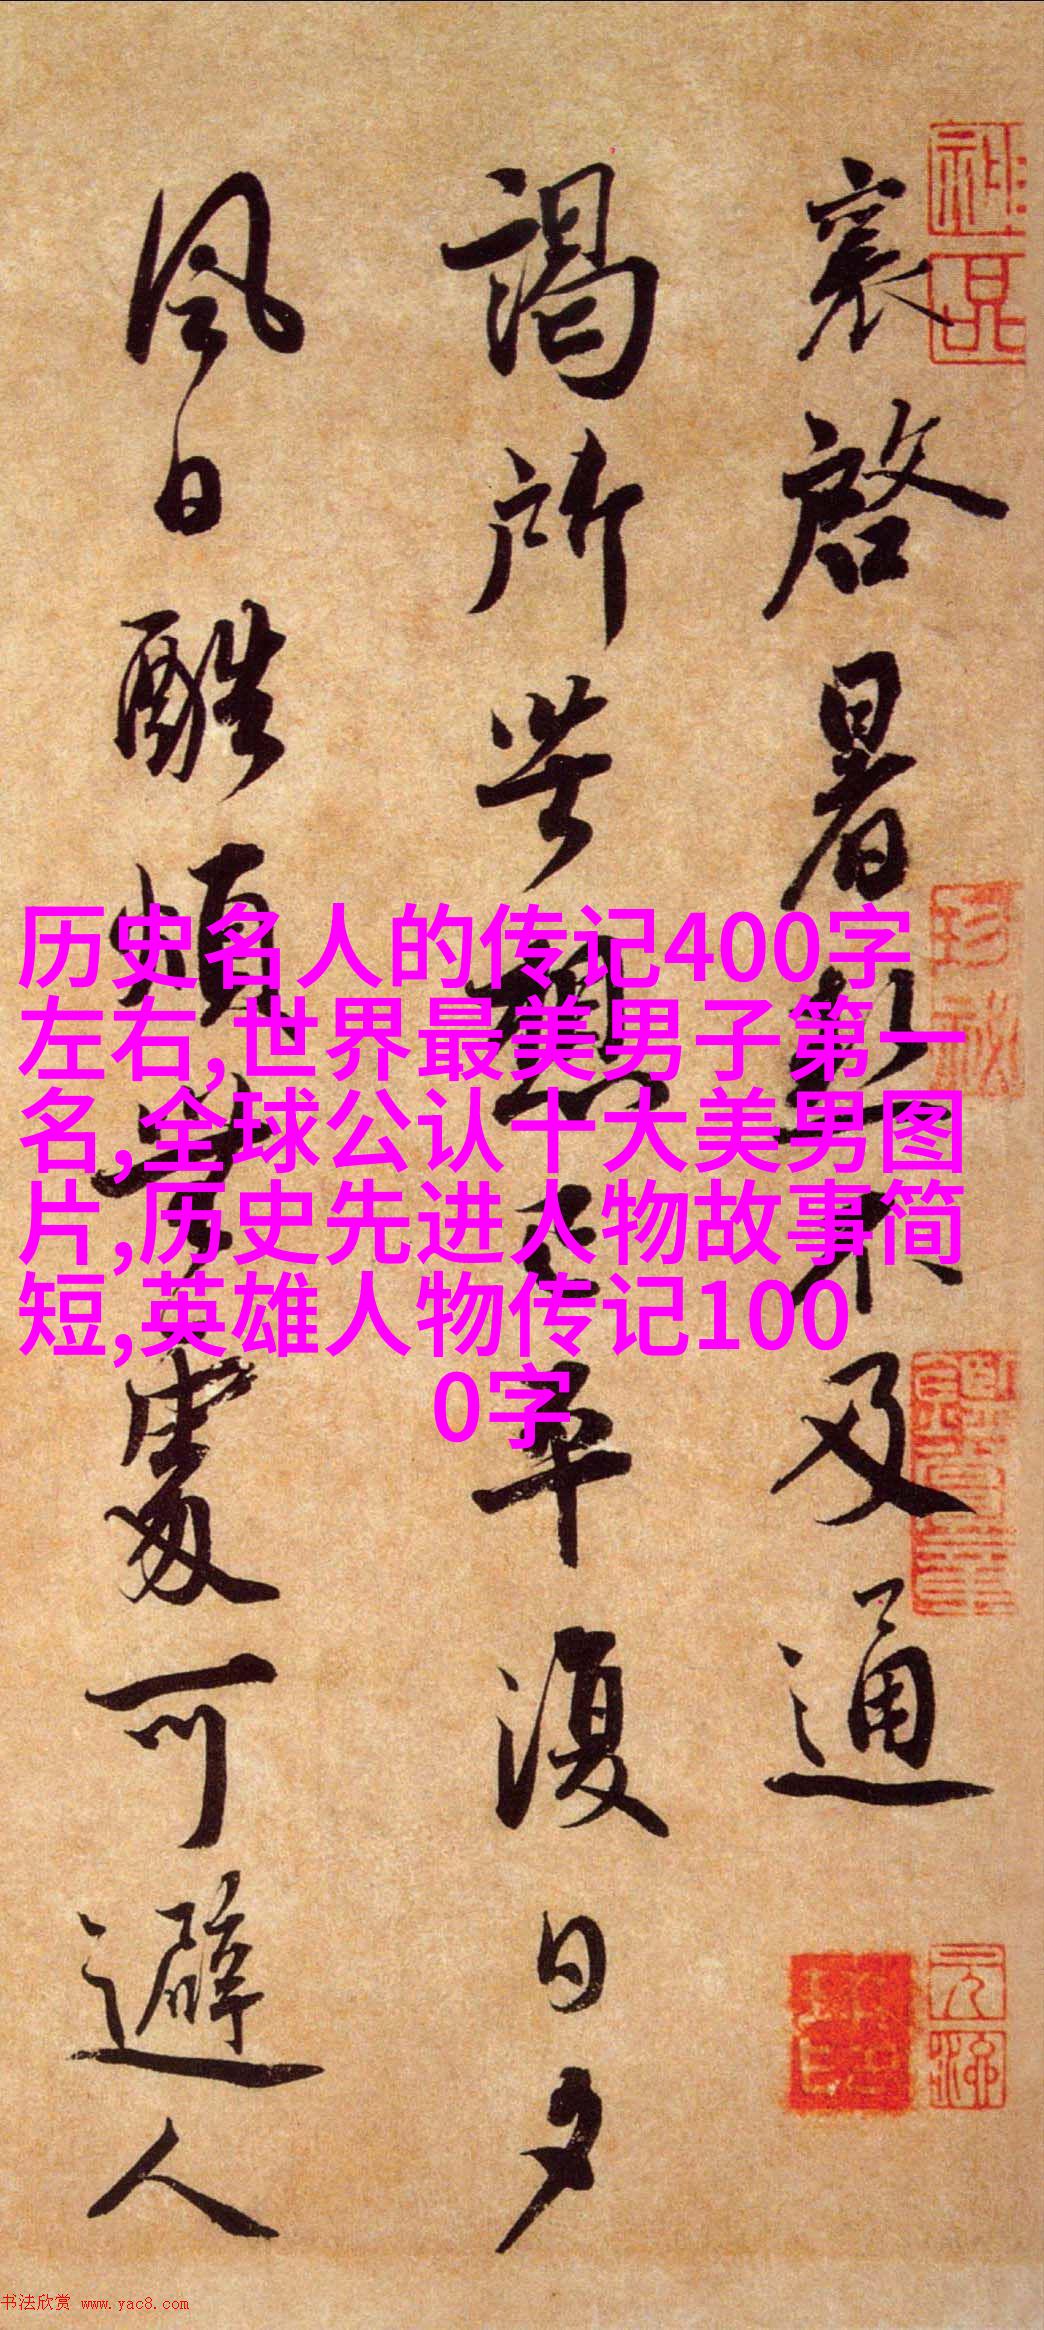 襄啓暑熱不及通
謁所苦想已平復日夕
風日酷煩無處可避人
历史名人的传记400字
左右,世界最美男子第一
名,全球公认十大美男图
片,历史先进人物故事简
短,英雄人物传记100
0字
书法欣赏 www.yac8.com